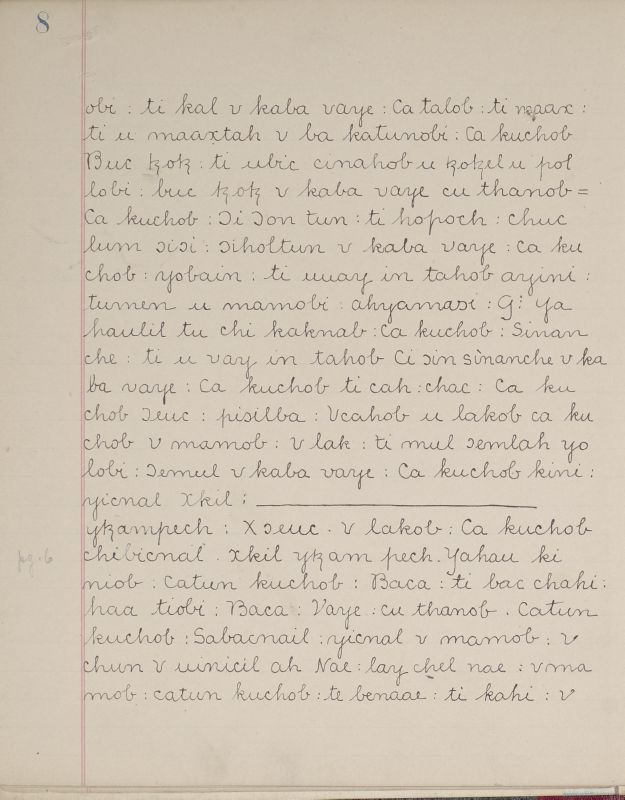 8
obi : ti kal v kaba vaye : Ca talob : ti maax :
ti u maaxtah v ba katunobi : Ca kuchob
Buc ꜩoꜩ : ti ubic cinahob u ꜩoꜩel u pol
lobi : buc ꜩoꜩ v kaba vaye cu thanob =
Ca kuchob : Ɔi Ɔon tun : ti hopoch : chuc
lum ɔiɔi : ɔiholtun v kaba vaye : ca ku
chob : yobain : ti uuay in tahob ayini :
tumen u mamobi : ahyamaɔi : G: Ya
haulil tu chi kaknab : Ca kuchob : Sinan
che : ti u vay in tahob Ci ɔin sinanche v ka
ba vaye : Ca kuchob ti cah : chac : Ca ku
chob Ɔeuc : pisilba : Vcahob u lakob ca ku
chob v mamob : v lak : ti mul ɔemlah yo
lobi : Ɔemul v kaba vaye : Ca kuchob kini :
yicnal Xkil :
yꜩampech : Xɔeuc . v lakob : Ca kuchob
pg. 6
chibicnal . xkil yꜩam pech . Yahau ki
niob : Catun kuchob : Baca : ti bac chahi :
haa tiobi : Baca : Vaye : cu thanob . Catun
kuchob : Sabacnail : yicnal v mamob : v
chun v uinicil ah Nae : lay chel nae : v ma
mob : catun kuchob : te benaae : ti kahi : v